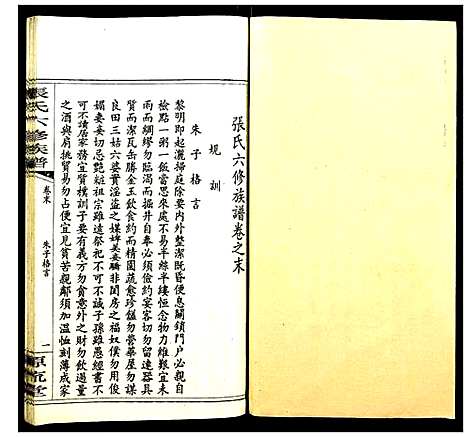 張氏六修族譜卷之末
規訓
朱子格言
黎明即起灑掃庭除要內外整潔既昏便息關鎖門戶必親自
檢點一粥一飯當思來處不易半絲半縷恒念物力維艱宜未
雨而綢繆勿臨渴而掘井自奉必須儉約宴客切勿留連器具
質而潔瓦缶勝金玉飲食約而精園蔬愈珍饈勿營華屋勿謀
良田三姑六婆實淫盜之媒婢美妾嬌非閨房之福奴僕勿用俊
美妻妾切忌艷粧祖宗雖遠祭祀不可不誠子孫雖愚經書不
可不讀居家務宜質樸訓子要有義方勿貪意外之財勿飲過量
之酒與肩挑貿易勿占便宜見貧苦親鄰須加溫恤刻薄成家
張氏六修族譜
卷末
朱子格言
一